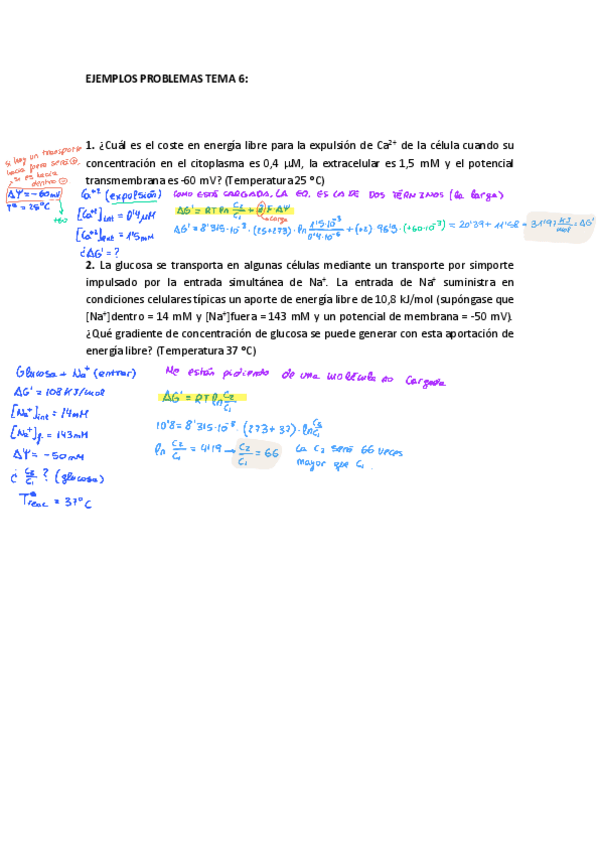 EJEMPLOS PROBLEMAS TEMA 6:
1. ¿Cuál es el coste en energía libre para la expulsión de Ca²⁺ de la célula cuando su
concentración en el citoplasma es 0,4 µM, la extracelular es 1,5 mM y el potencial
transmembrana es -60 mV? (Temperatura 25 ºC)
si hay un transporte
hacia fuera será ⊕,
si es hacia
dentro ⊖
ΔΨ = -60mV
Tª = 25ºC
Ca⁺² (expulsión) COMO ESTÁ CARGADA, LA EQ. ES LA DE DOS TÉRMINOS (la larga)
[Ca⁺²]int = 0'4 µM
ΔG' = RT ln C₂/C₁ + z F · ΔΨ
carga
[Ca⁺²]ext = 1'5 mM
ΔG' = 8'315·10⁻³ · (25+273) · ln 1'5·10⁻³/0'4·10⁻⁶ + (+2) 96'5 · (+60·10⁻³) = 20'39 + 11'58 = 31'97 KJ/mol = ΔG'
¿ΔG' = ?
2. La glucosa se transporta en algunas células mediante un transporte por simporte
impulsado por la entrada simultánea de Na⁺. La entrada de Na⁺ suministra en
condiciones celulares típicas un aporte de energía libre de 10,8 kJ/mol (supóngase que
[Na⁺]dentro = 14 mM y [Na⁺]fuera = 143 mM y un potencial de membrana = -50 mV).
¿Qué gradiente de concentración de glucosa se puede generar con esta aportación de
energía libre? (Temperatura 37 ºC)
Glucosa + Na⁺ (entrar)
Me están pidiendo de una molécula no cargada
ΔG' = 108 KJ/mol
ΔG' = RT ln C₂/C₁
[Na⁺]int = 14mM
[Na⁺]f = 143mM
10'8 = 8'315·10⁻³ · (273 + 37) · ln C₂/C₁
ΔΨ = -50mM
ln C₂/C₁ = 4'19 → C₂/C₁ = 66 La C₂ será 66 veces
mayor que C₁.
¿ C₂/C₁ ? (glucosa)
Tªreac = 37ºC